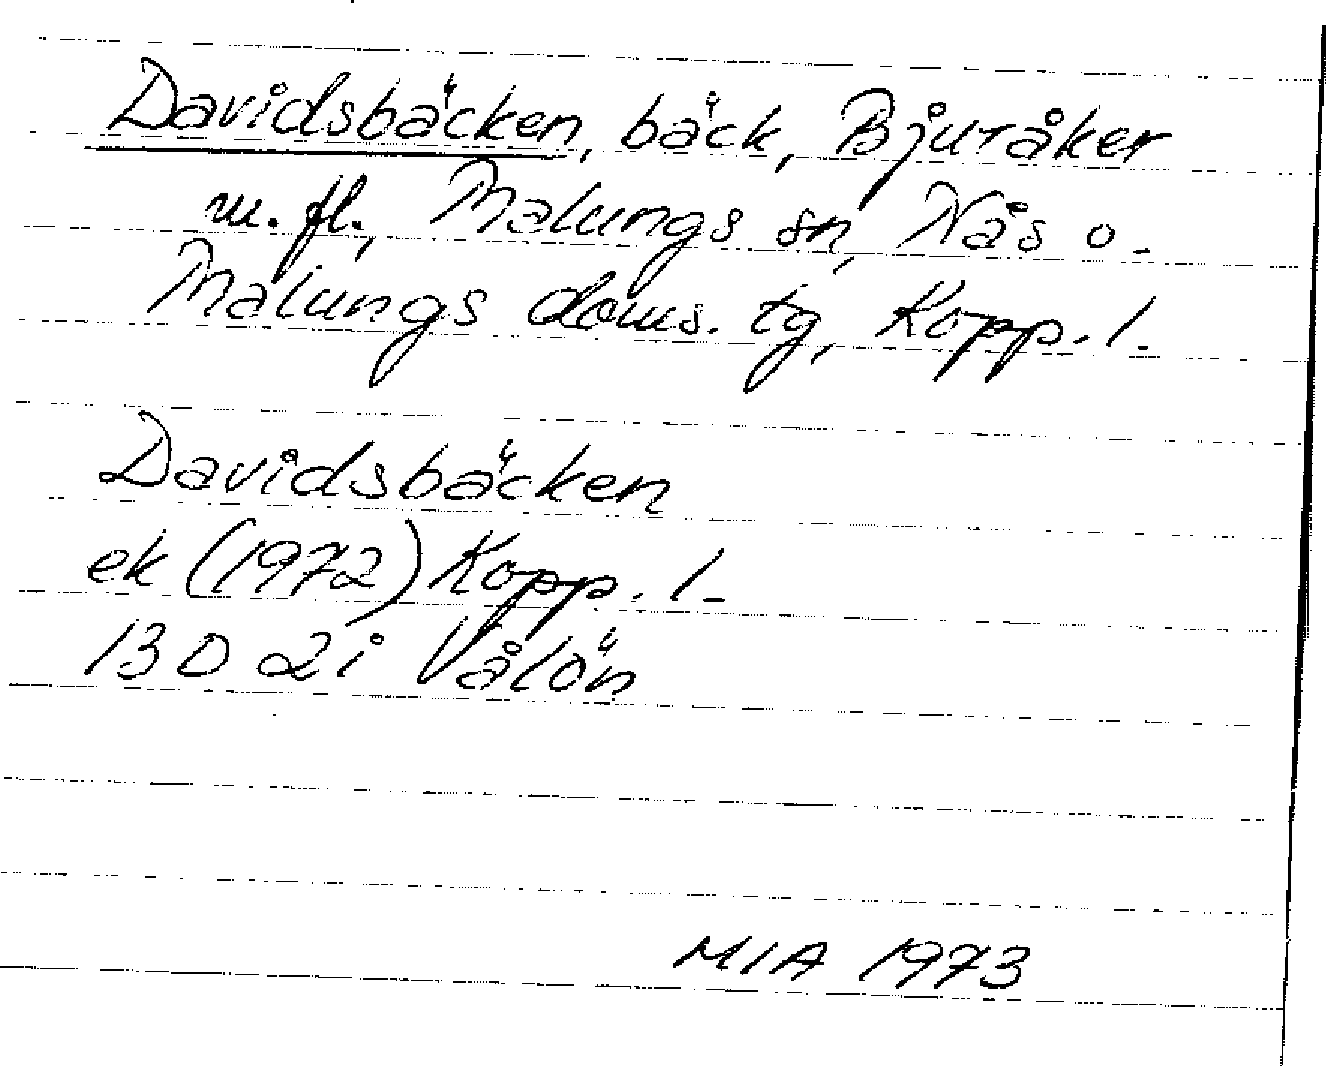 Davidsbäcken, bäck, Bjuråker
m. fl., Malungs sn, Nås o.
Malungs doms. tg, Kopp. l.
Davidsbäcken
ek (1972) Kopp. l.
13 D 2i Vålön
MIA 1973